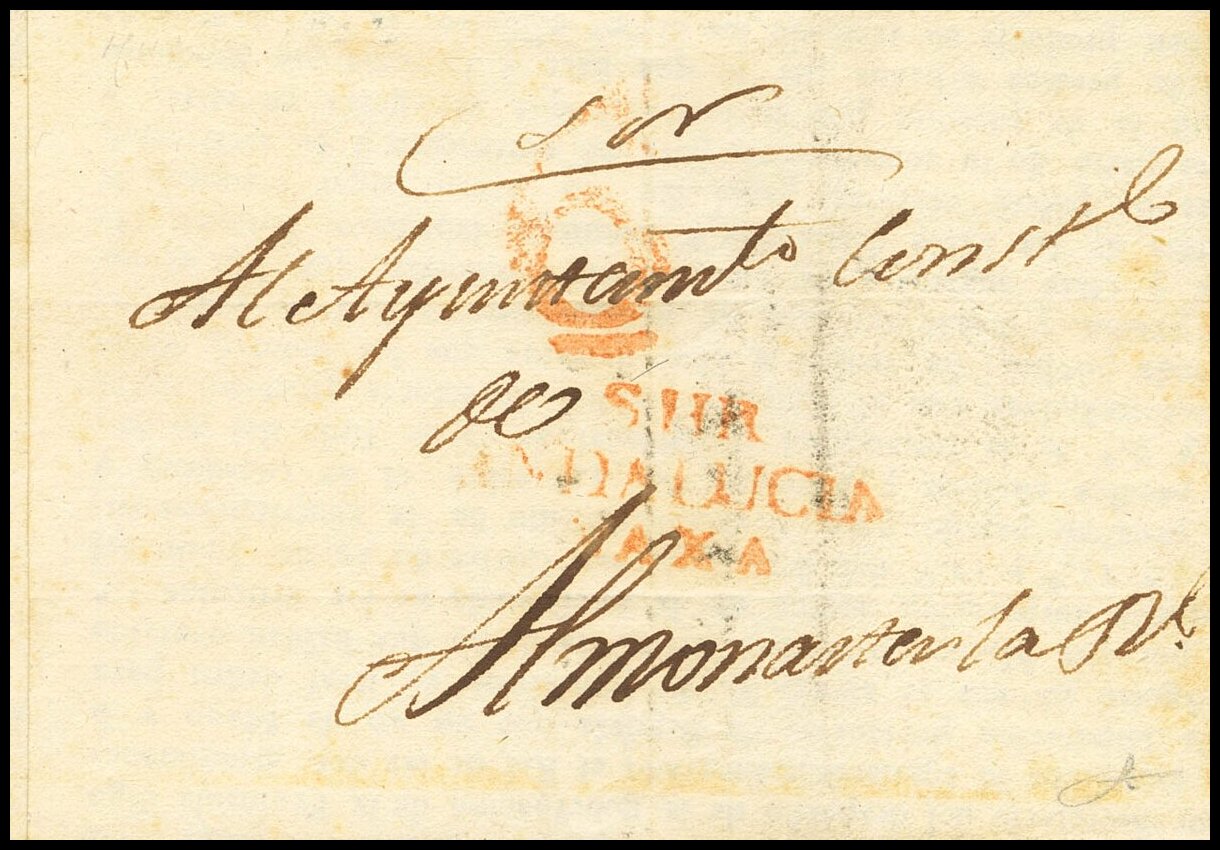 Al Ayuntam.to Const.l
de
SUR
ANDALUCIA
AXA
Almonaster la Rl.